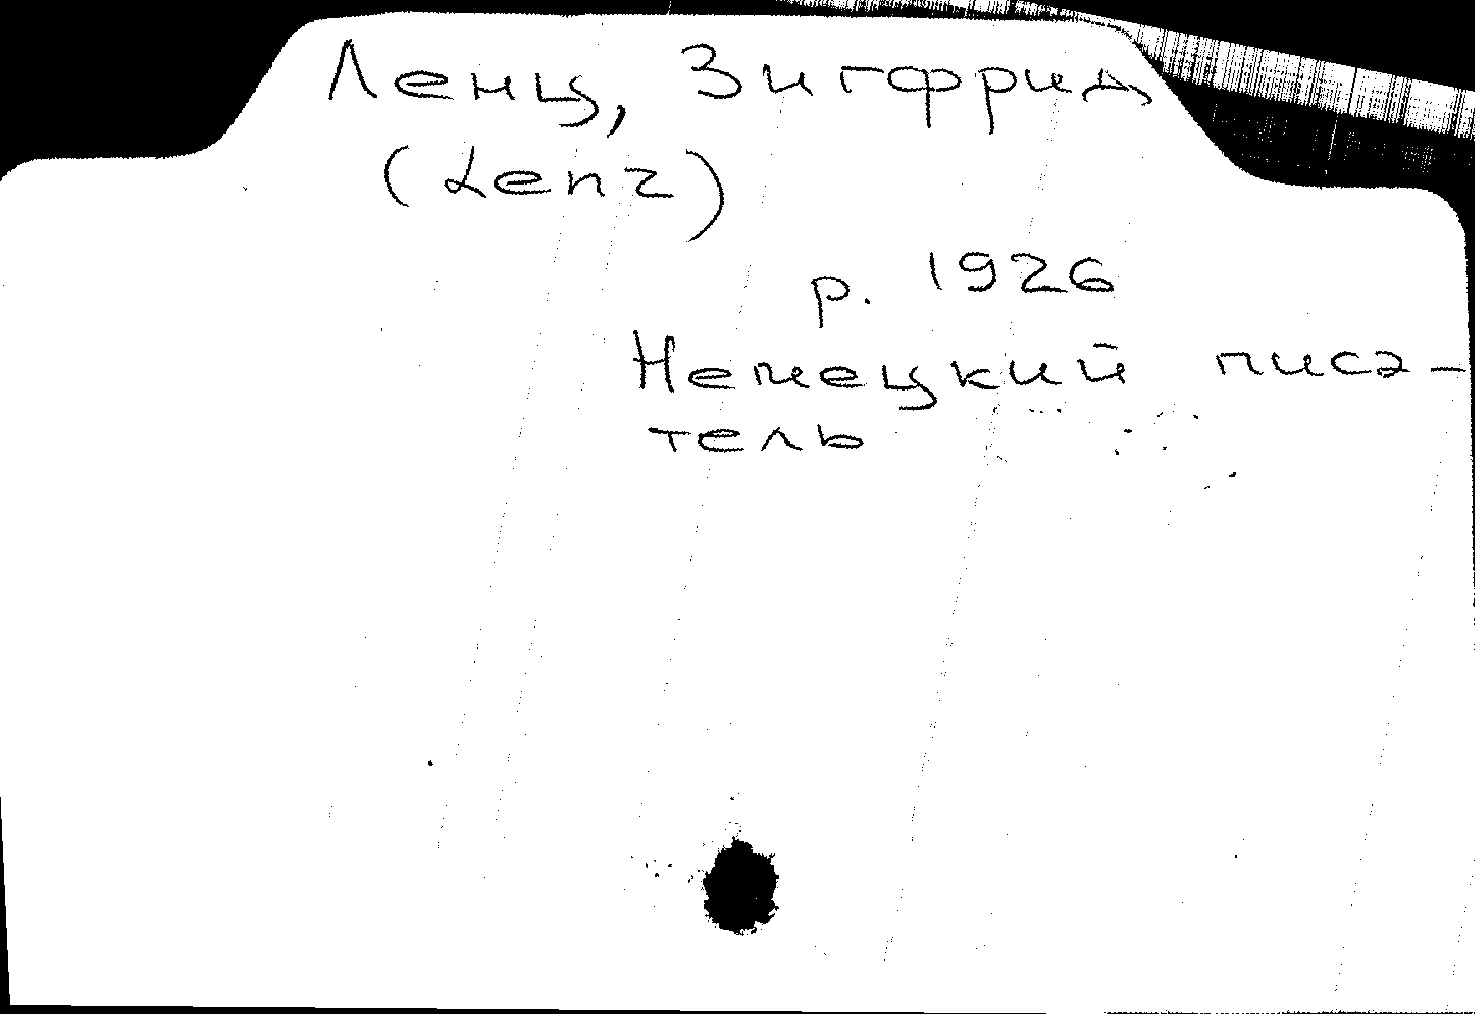 Ленц, Зигфрид
(Lenz)
р. 1926
Немецкий писа-
тель